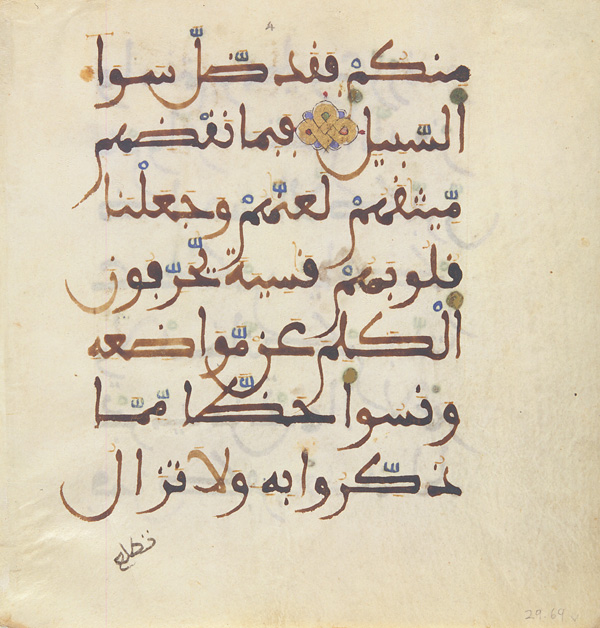 4
منكم فقد ضلّ سوا
السّبيل فبما نقضهم
مّيثقهم لعنّهم وجعلنا
قلوبهم قسية يحرّفون
الكلم عن مّواضعه
ونسوا حظّا مّمّا
ذكّروا به ولا تزال
تطلع
29.64